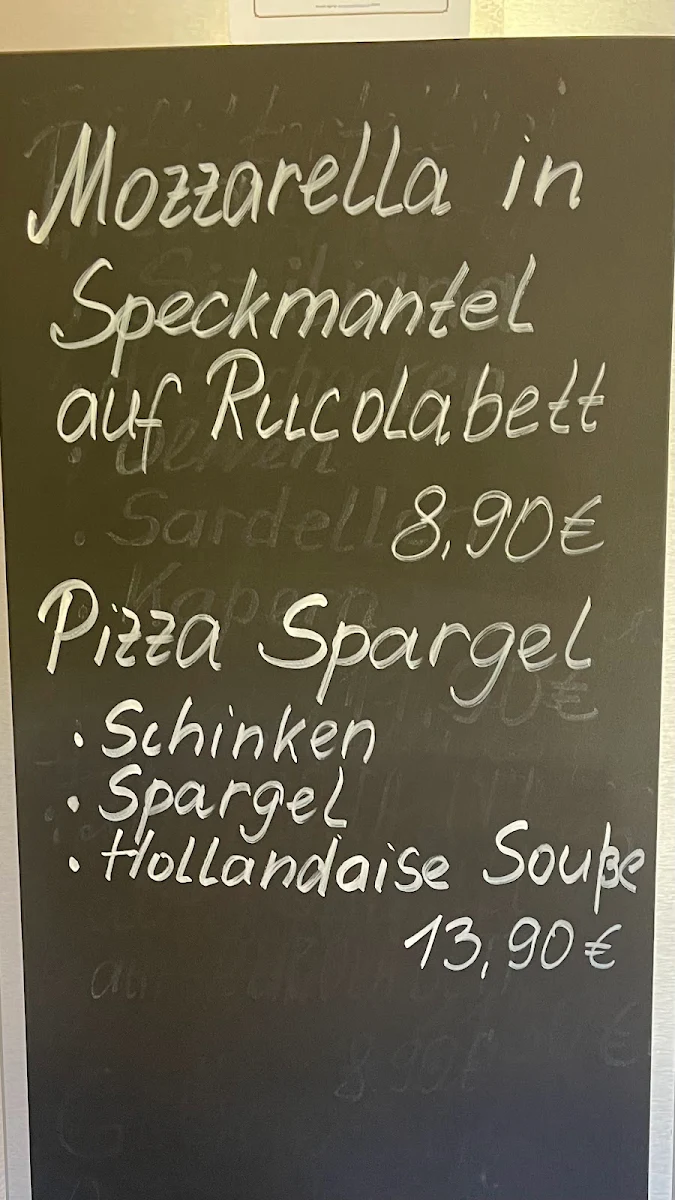 Mozzarella in
Speckmantel
auf Rucolabett
8,90€
Pizza Spargel
• Schinken
• Spargel
• Hollandaise Souße
13,90€